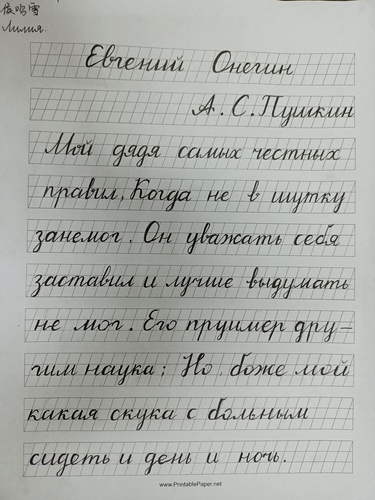 Лилия.
Евгений Онегин
А. С. Пушкин
Мой дядя самых честных
правил, Когда не в шутку
занемог. Он уважать себя
заставил и лучше выдумать
не мог. Его пруимер дру-
гим наука; Но, боже мой
какая скука с больным
сидеть и день и ночь.
www.PrintablePaper.net